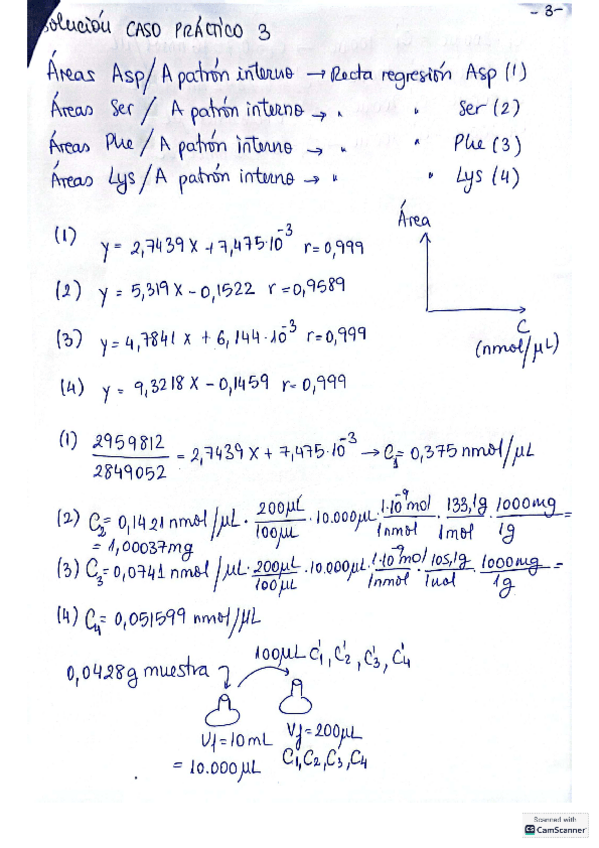 -3-
solución CASO PRÁCTICO 3
Áreas Asp/ A patrón interno → Recta regresión Asp (1)
Áreas Ser / A patrón interno → " " Ser (2)
Áreas Phe / A patrón interno → " " Phe (3)
Áreas Lys / A patrón interno → " " Lys (4)
Área
(1) y = 2,7439 X + 7,475·10⁻³ r=0,999
(2) y = 5,319 X - 0,1522 r=0,9589
(3) y = 4,7841 x + 6,144·10⁻³ r=0,999
C
(nmol/µL)
(4) y = 9,3218 X - 0,1459 r=0,999
(1) 2959812 / 2849052 = 2,7439 X + 7,475·10⁻³ → C₁= 0,375 nmol/µL
(2) C₂= 0,1421 nmol/µL · 200µL/100µL · 10.000µL · 1·10⁻⁹mol/1nmol · 133,1g/1mol · 1000mg/1g =
= 1,00037mg
(3) C₃= 0,0741 nmol/µL · 200µL/100µL · 10.000µL · 1·10⁻⁹mol/1nmol · 105,1g/1mol · 1000mg/1g =
(4) C₄= 0,051599 nmol/µL
100µL C'₁, C'₂, C'₃, C'₄
0,0428g muestra
Vf=10mL Vf=200µL
= 10.000µL C₁,C₂,C₃,C₄
Scanned with
CS CamScanner